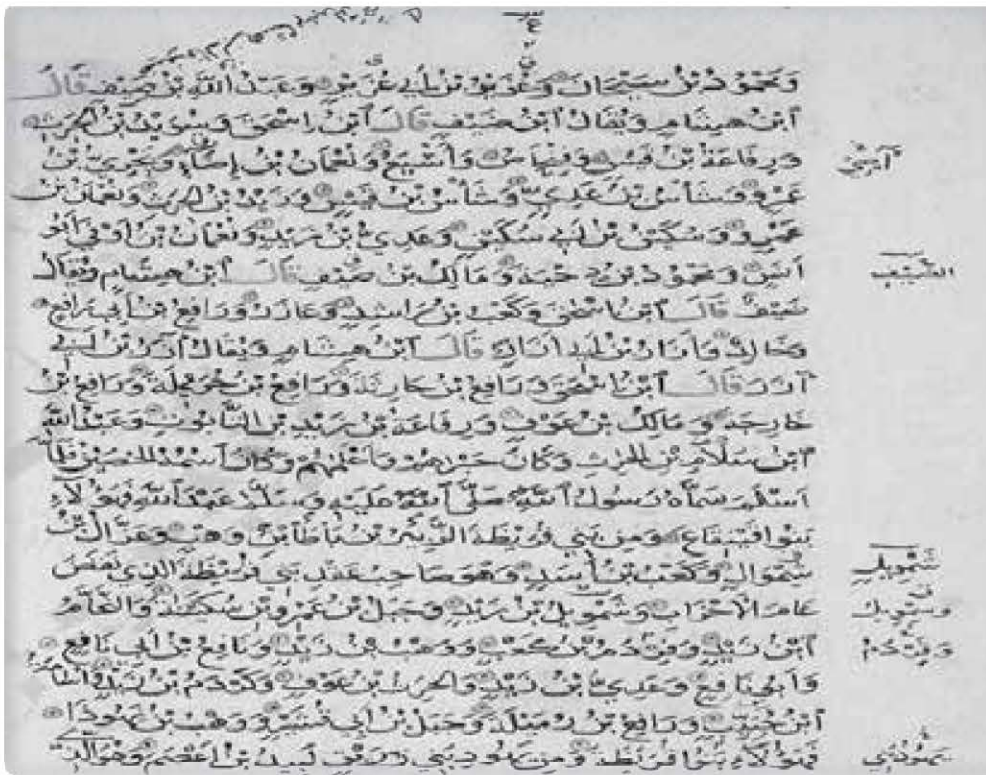 وَمَحْمُودُ بْنُ سَيْحَانَ وَعُزَيْزُ بْنُ أَبِي عُزَيْزٍ وَعَبْدُ اللَّهِ بْنُ صَيْفٍ قَالَ
ابْنُ هِشَامٍ وَيُقَالُ ابْنُ ضَيْفٍ قَالَ ابْنُ إِسْحَقَ وَسُوَيْدُ بْنُ الْحَرِثِ
وَرِفَاعَةُ بْنُ قَيْسٍ وَفِنْحَاصُ وَأَشْيَعُ وَنُعْمَانُ بْنُ إِضَاءٍ وَبَحْرِيُّ بْنُ
عَمْرٍو وَشَاسُ بْنُ عَدِيٍّ وَشَأْسُ بْنُ قَيْسٍ وَزَيْدُ بْنُ الْحَرِثِ وَنُعْمَانُ بْنُ
عَمْرٍو وَسُكَيْنُ بْنُ أَبِي سُكَيْنٍ وَعَدِيُّ بْنُ زَيْدٍ وَنُعْمَانُ بْنُ أَوْفَى أَبُو
أَنَسٍ وَمَحْمُودُ بْنُ دِحْيَةَ وَمَالِكُ بْنُ صَيْفٍ قَالَ ابْنُ هِشَامٍ وَيُقَالُ
الضَّيْفِ
ضَيْفٌ قَالَ ابْنُ إِسْحَقَ وَكَعْبُ بْنُ رَاشِدٍ وَعَازَرُ وَرَافِعُ بْنُ أَبِي رَافِعٍ
وَخَالِدٌ وَأَزَارُ بْنُ أَبِي أَزَارٍ قَالَ ابْنُ هِشَامٍ وَيُقَالُ آزَرُ بْنُ أَبِي
آزَرَ قَالَ ابْنُ إِسْحَقَ وَرَافِعُ بْنُ حَارِثَةَ وَرَافِعُ بْنُ حُرَيْمِلَةَ وَرَافِعُ بْنُ
خَارِجَةَ وَمَالِكُ بْنُ عَوْفٍ وَرِفَاعَةُ بْنُ زَيْدِ بْنِ التَّابُوتِ وَعَبْدُ اللَّهِ
ابْنُ سَلَامِ بْنِ الْحَرِثِ وَكَانَ حَبْرَهُمْ وَأَعْلَمَهُمْ وَكَانَ اسْمُهُ الْحُصَيْنَ فَلَمَّا
أَسْلَمَ سَمَّاهُ رَسُولُ اللَّهِ صَلَّى اللَّهُ عَلَيْهِ وَسَلَّمَ عَبْدَ اللَّهِ فَهَؤُلَاءِ
بَنُوا قَيْنُقَاعَ وَمِنْ بَنِي قُرَيْظَةَ الزُّبَيْرُ بْنُ بَاطَا بْنِ وَهْبٍ وَعَزَّالُ بْنُ
شَمْوِيلِ
شَمْوَالٍ وَكَعْبُ بْنُ أَسَدٍ وَهُوَ صَاحِبُ عَقْدِ بَنِي قُرَيْظَةَ الَّذِي نُقِضَ
عَامَ الْأَحْزَابِ وَشَمْوِيلُ بْنُ زَيْدٍ وَجَبَلُ بْنُ عَمْرِو بْنِ سُكَيْنَةَ وَالنَّحَّامُ
ابْنُ زَيْدٍ وَقَرْدَمُ بْنُ كَعْبٍ وَوَهْبُ بْنُ زَيْدٍ وَنَافِعُ بْنُ أَبِي نَافِعٍ
وَأَبُو نَافِعٍ وَعَدِيُّ بْنُ زَيْدٍ وَالْحَرِثُ بْنُ عَوْفٍ وَكَرْدَمُ بْنُ زَيْدٍ وَأُسَامَةُ
ابْنُ حَبِيبٍ وَرَافِعُ بْنُ رُمَيْلَةَ وَجَبَلُ بْنُ أَبِي قُشَيْرٍ وَوَهْبُ بْنُ يَهُوذَا
فَهَؤُلَاءِ بَنُوا قُرَيْظَةَ وَمِنْ يَهُودِ بَنِي زُرَيْقٍ لَبِيدُ بْنُ أَعْصَمَ وَهُوَ الَّذِي